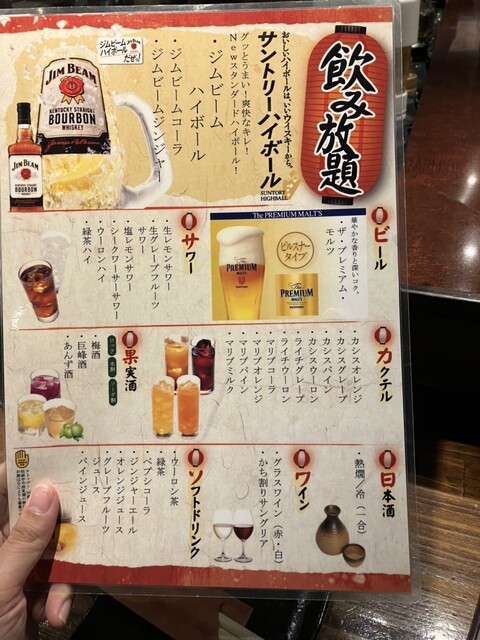 飲み放題
おいしいハイボールは、いいウイスキーから。
サントリーハイボール
SUNTORY
HIGHBALL
グッとうまい!爽快なキレ!
Newスタンダードハイボール!
・ジムビーム
ハイボール
・ジムビームコーラ
・ジムビームジンジャー
ジムビーム
ハイボール
だぜっ!
JIM BEAM
KENTUCKY STRAIGHT
BOURBON
WHISKEY
JIM BEAM
BOURBON
ビール
華やかな香りと深いコク。
・ザ・プレミアム・
モルツ
The PREMIUM MALT'S
ピルスナー
タイプ
The
PREMIUM
MALT'S
The
PREMIUM
MALT'S
サワー
・生レモンサワー
・生グレープフルーツ
サワー
・塩レモンサワー
・シークヮーサーサワー
・ウーロンハイ
・緑茶ハイ
カクテル
・カシスオレンジ
・カシスグレープ
・カシスパイン
・カシスウーロン
・ライチグレープ
・ライチウーロン
・マリブコーラ
・マリブオレンジ
・マリブパイン
・マリブミルク
果実酒
ロック
水割
ソーダ割
・梅酒
・巨峰酒
・あんず酒
日本酒
・熱燗/冷(一合)
ワイン
・グラスワイン(赤・白)
・かち割りサングリア
ソフトドリンク
・ウーロン茶
・緑茶
・ペプシコーラ
・ジンジャーエール
・オレンジジュース
・グレープフルーツ
ジュース
・パインジュース